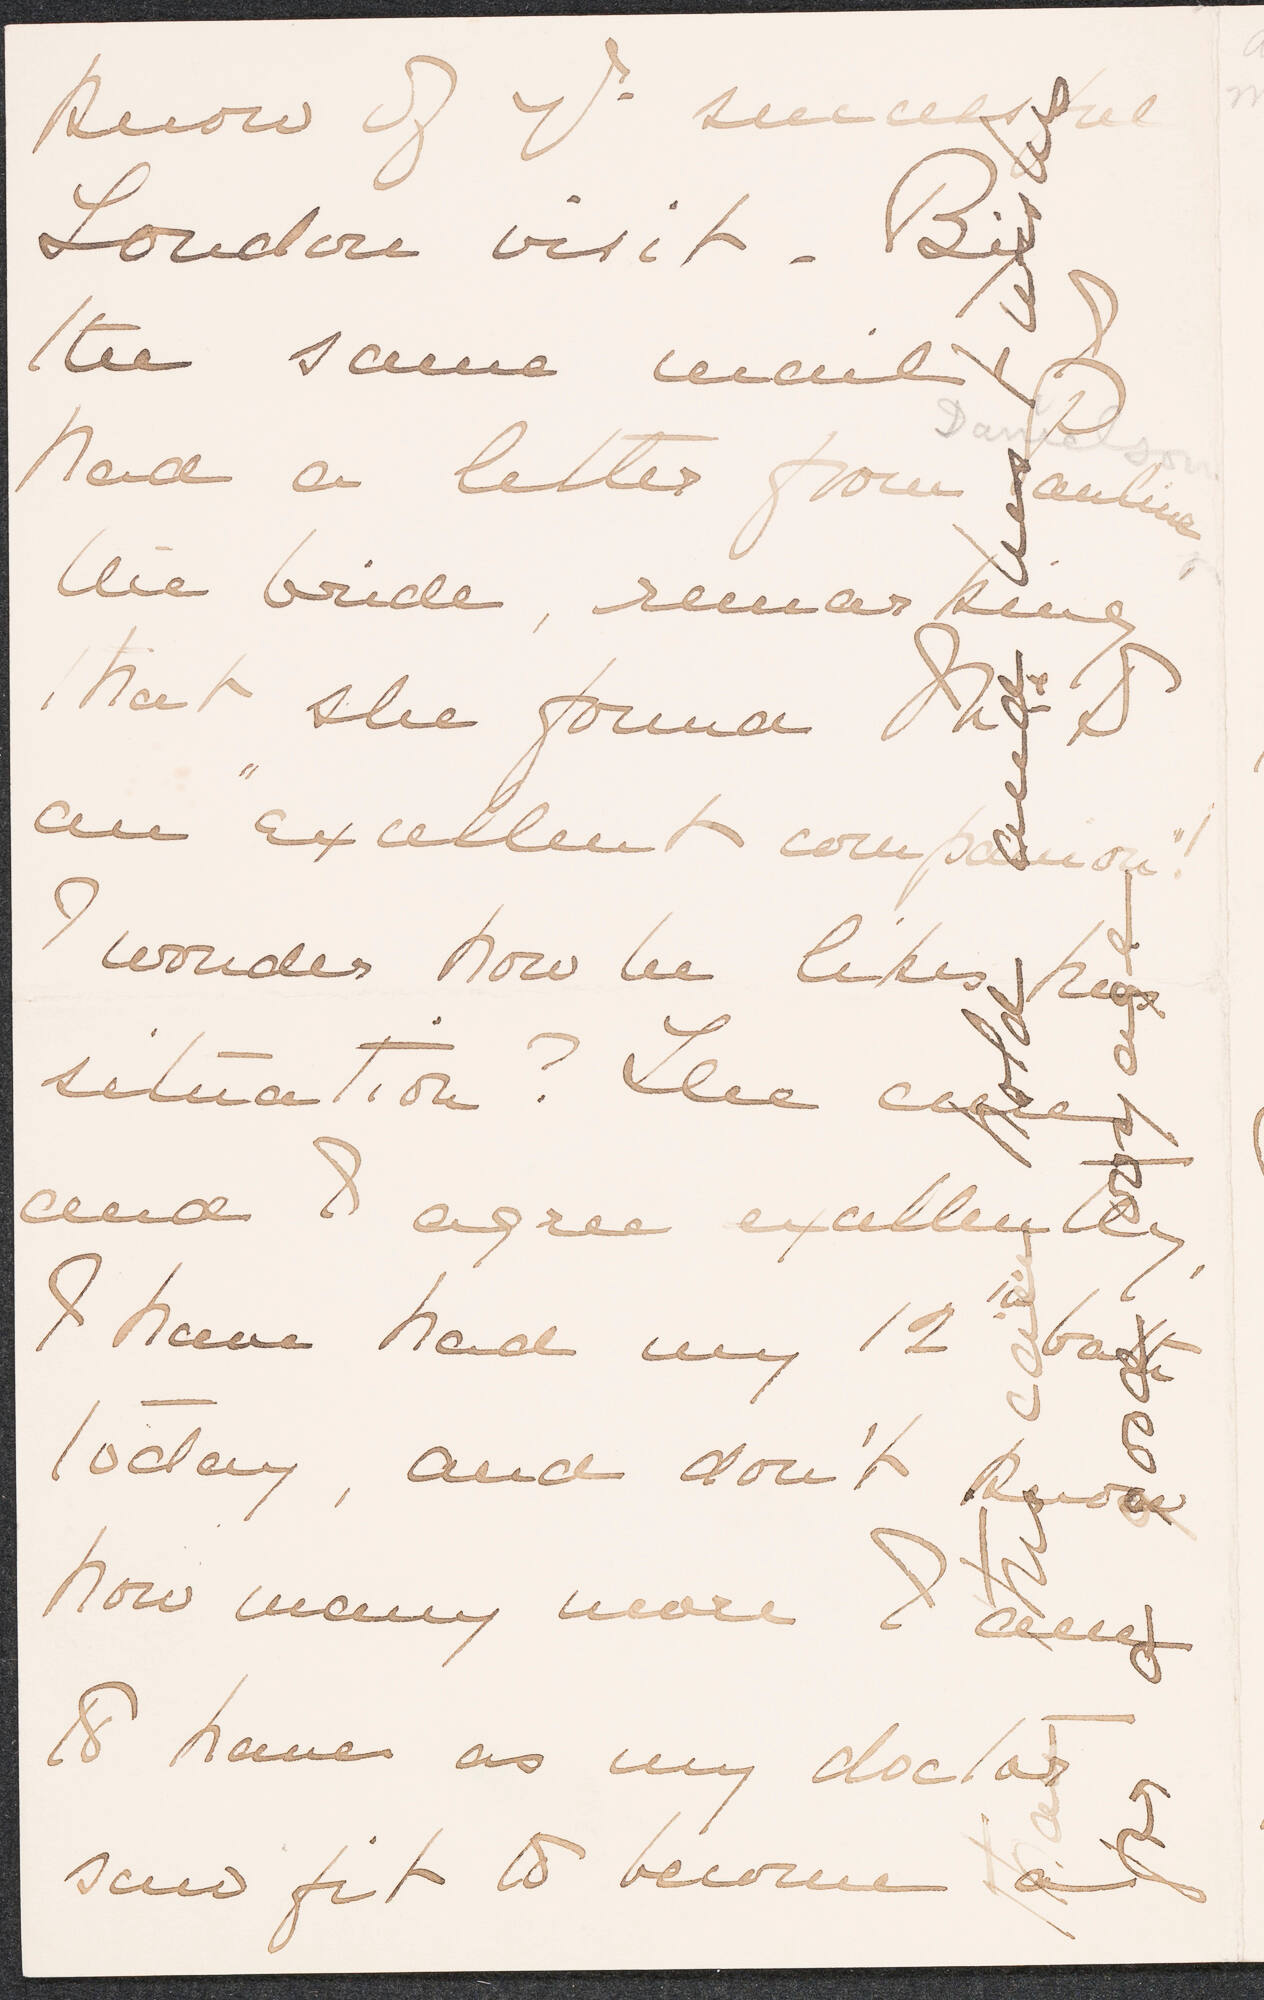 know of yr. successful
London visit - By
the same mail I
had a letter from Pauline
Danielson
the bride, remarking
that she found Mr. D
an "excellent companion"!
I wonder how he likes his
situation? The cure
and I agree excellently,
I have had my 12th bath
today, and don't know
how many more I am
to have as my doctor
saw fit to become a
that the cure
hold and her
good